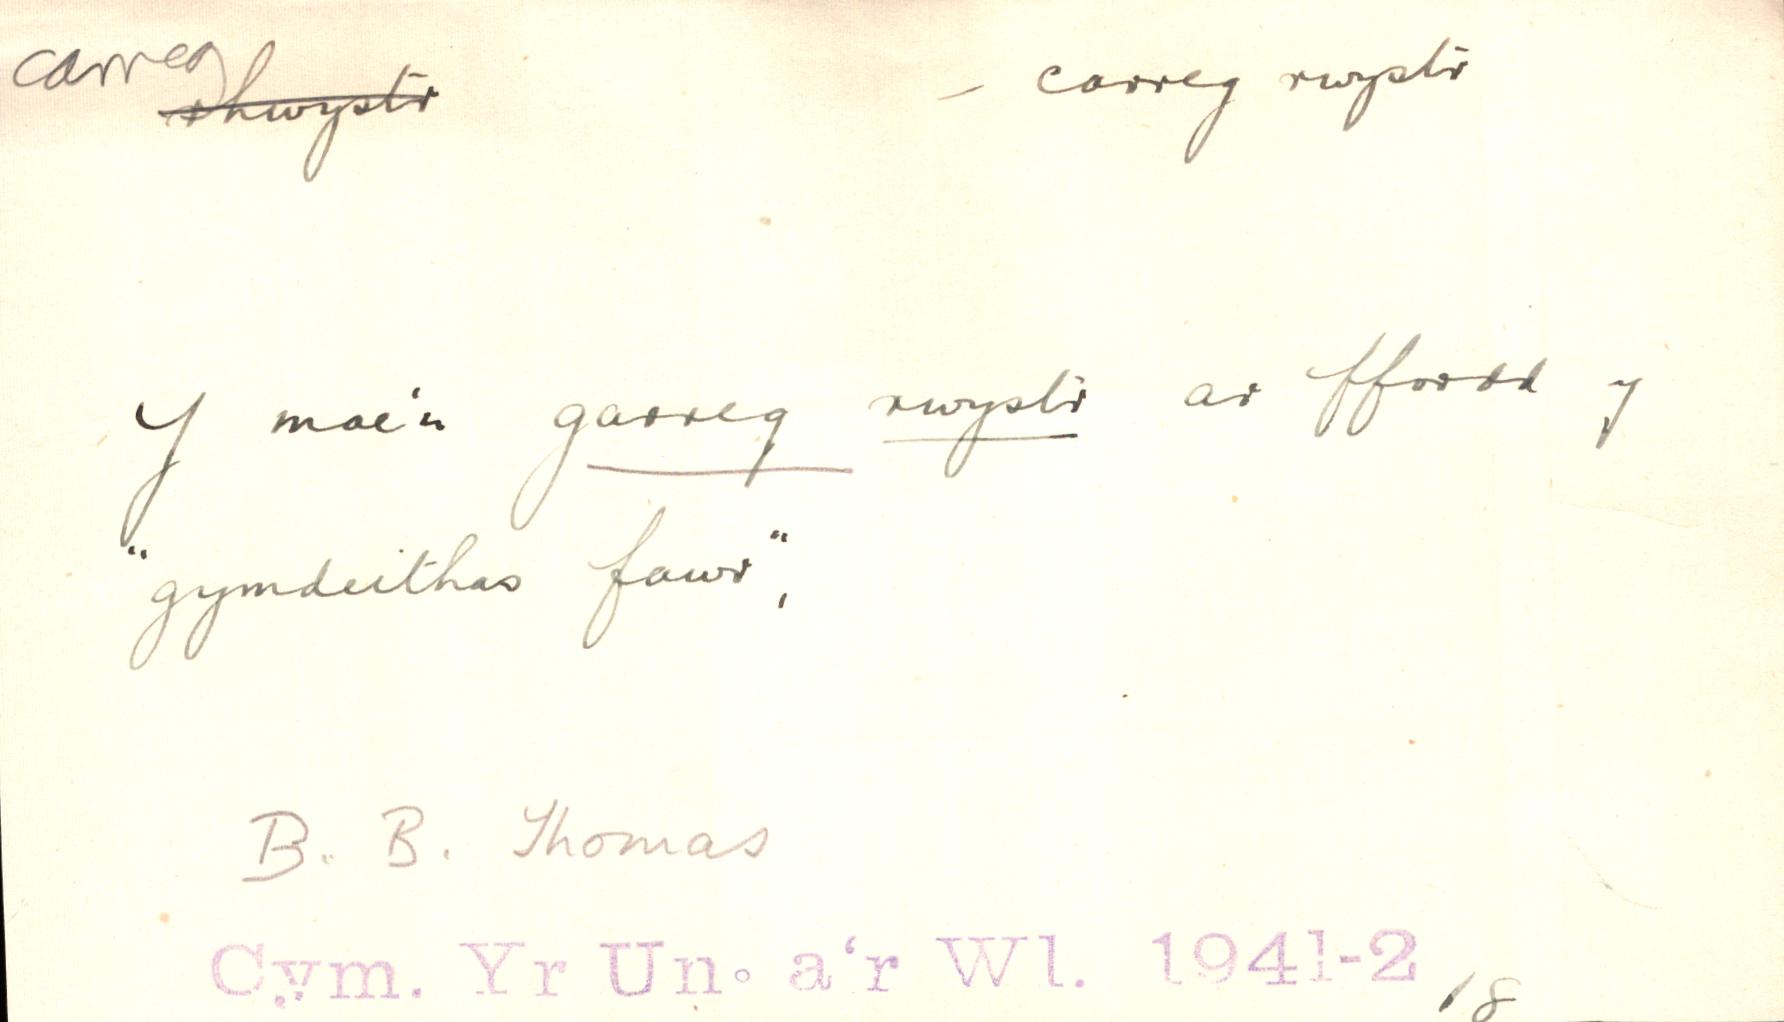 carreg rhwystr - carreg rwystr
Y mae'n garreg rwystr ar ffordd y
"gymdeithas fawr",
B. B. Thomas
Cym. Yr Un. a'r Wl. 1941-2, 18